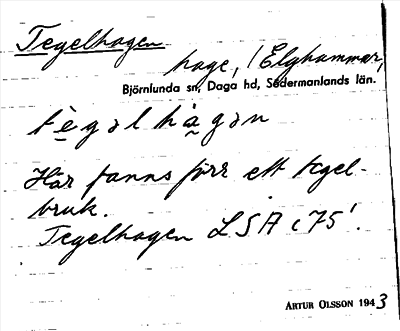 Tegelhagen
hage, /Elghammar,
Björnlunda sn, Daga hd, Södermanlands län.
tègəlhàgən
Här fanns förr ett tegel-
bruk.
Tegelhagen LSA c75'.
ARTUR OLSSON 1943